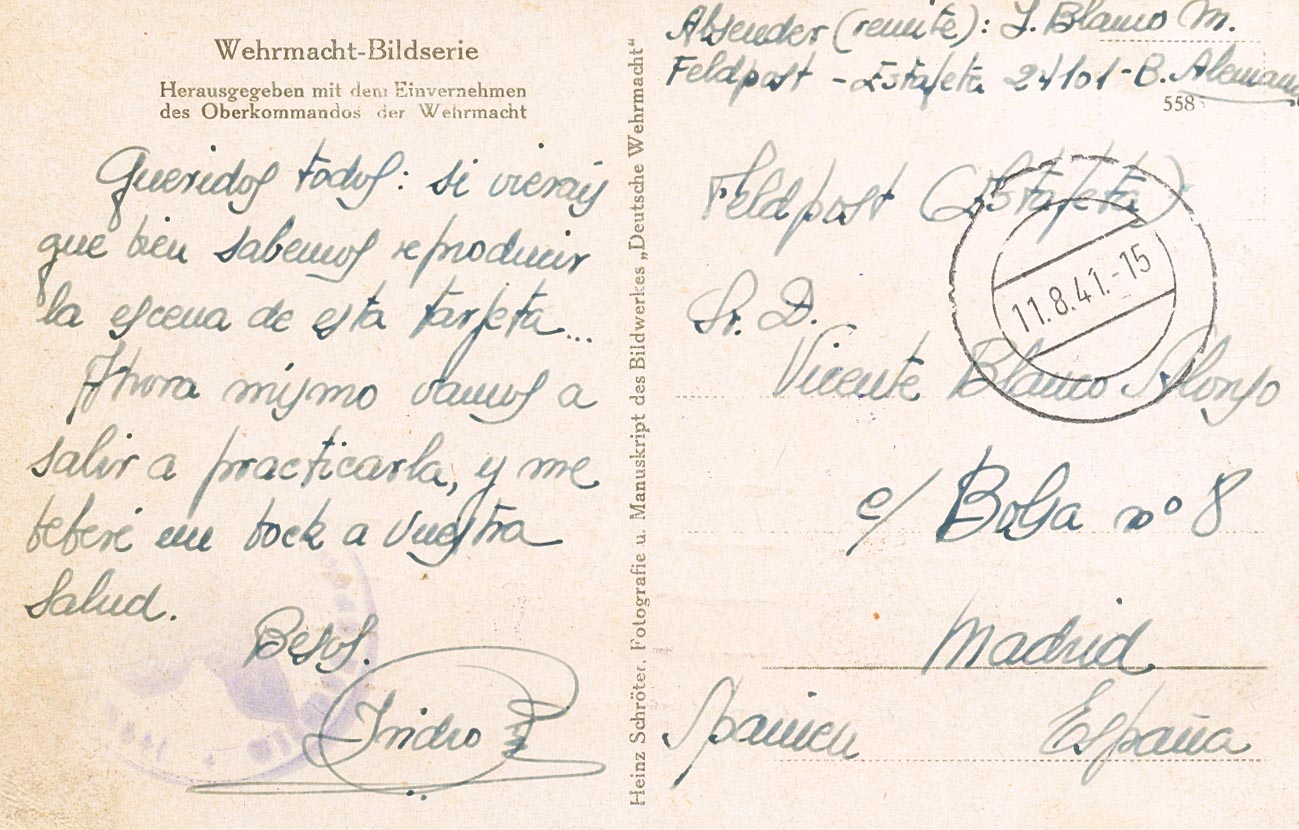 Wehrmacht-Bildserie
Herausgegeben mit dem Einvernehmen
des Oberkommandos der Wehrmacht
Queridos todos: si vierais
que bien sabemos reproducir
la escena de esta tarjeta...
Ahora mismo vamos a
salir a practicarla, y me
beberé un bock a vuestra
salud.
Besos.
Isidro
Heinz Schröter, Fotografie u. Manuskript des Bildwerkes „Deutsche Wehrmacht"
Absender (remite): I. Blanco M.
Feldpost - Estafeta 24101-B. Alemania
558
Feldpost (Estafeta)
11.8.41.-15
Sr. D.
Vicente Blanco Alonso
c/ Bolsa nº 8
Madrid
Spanien España